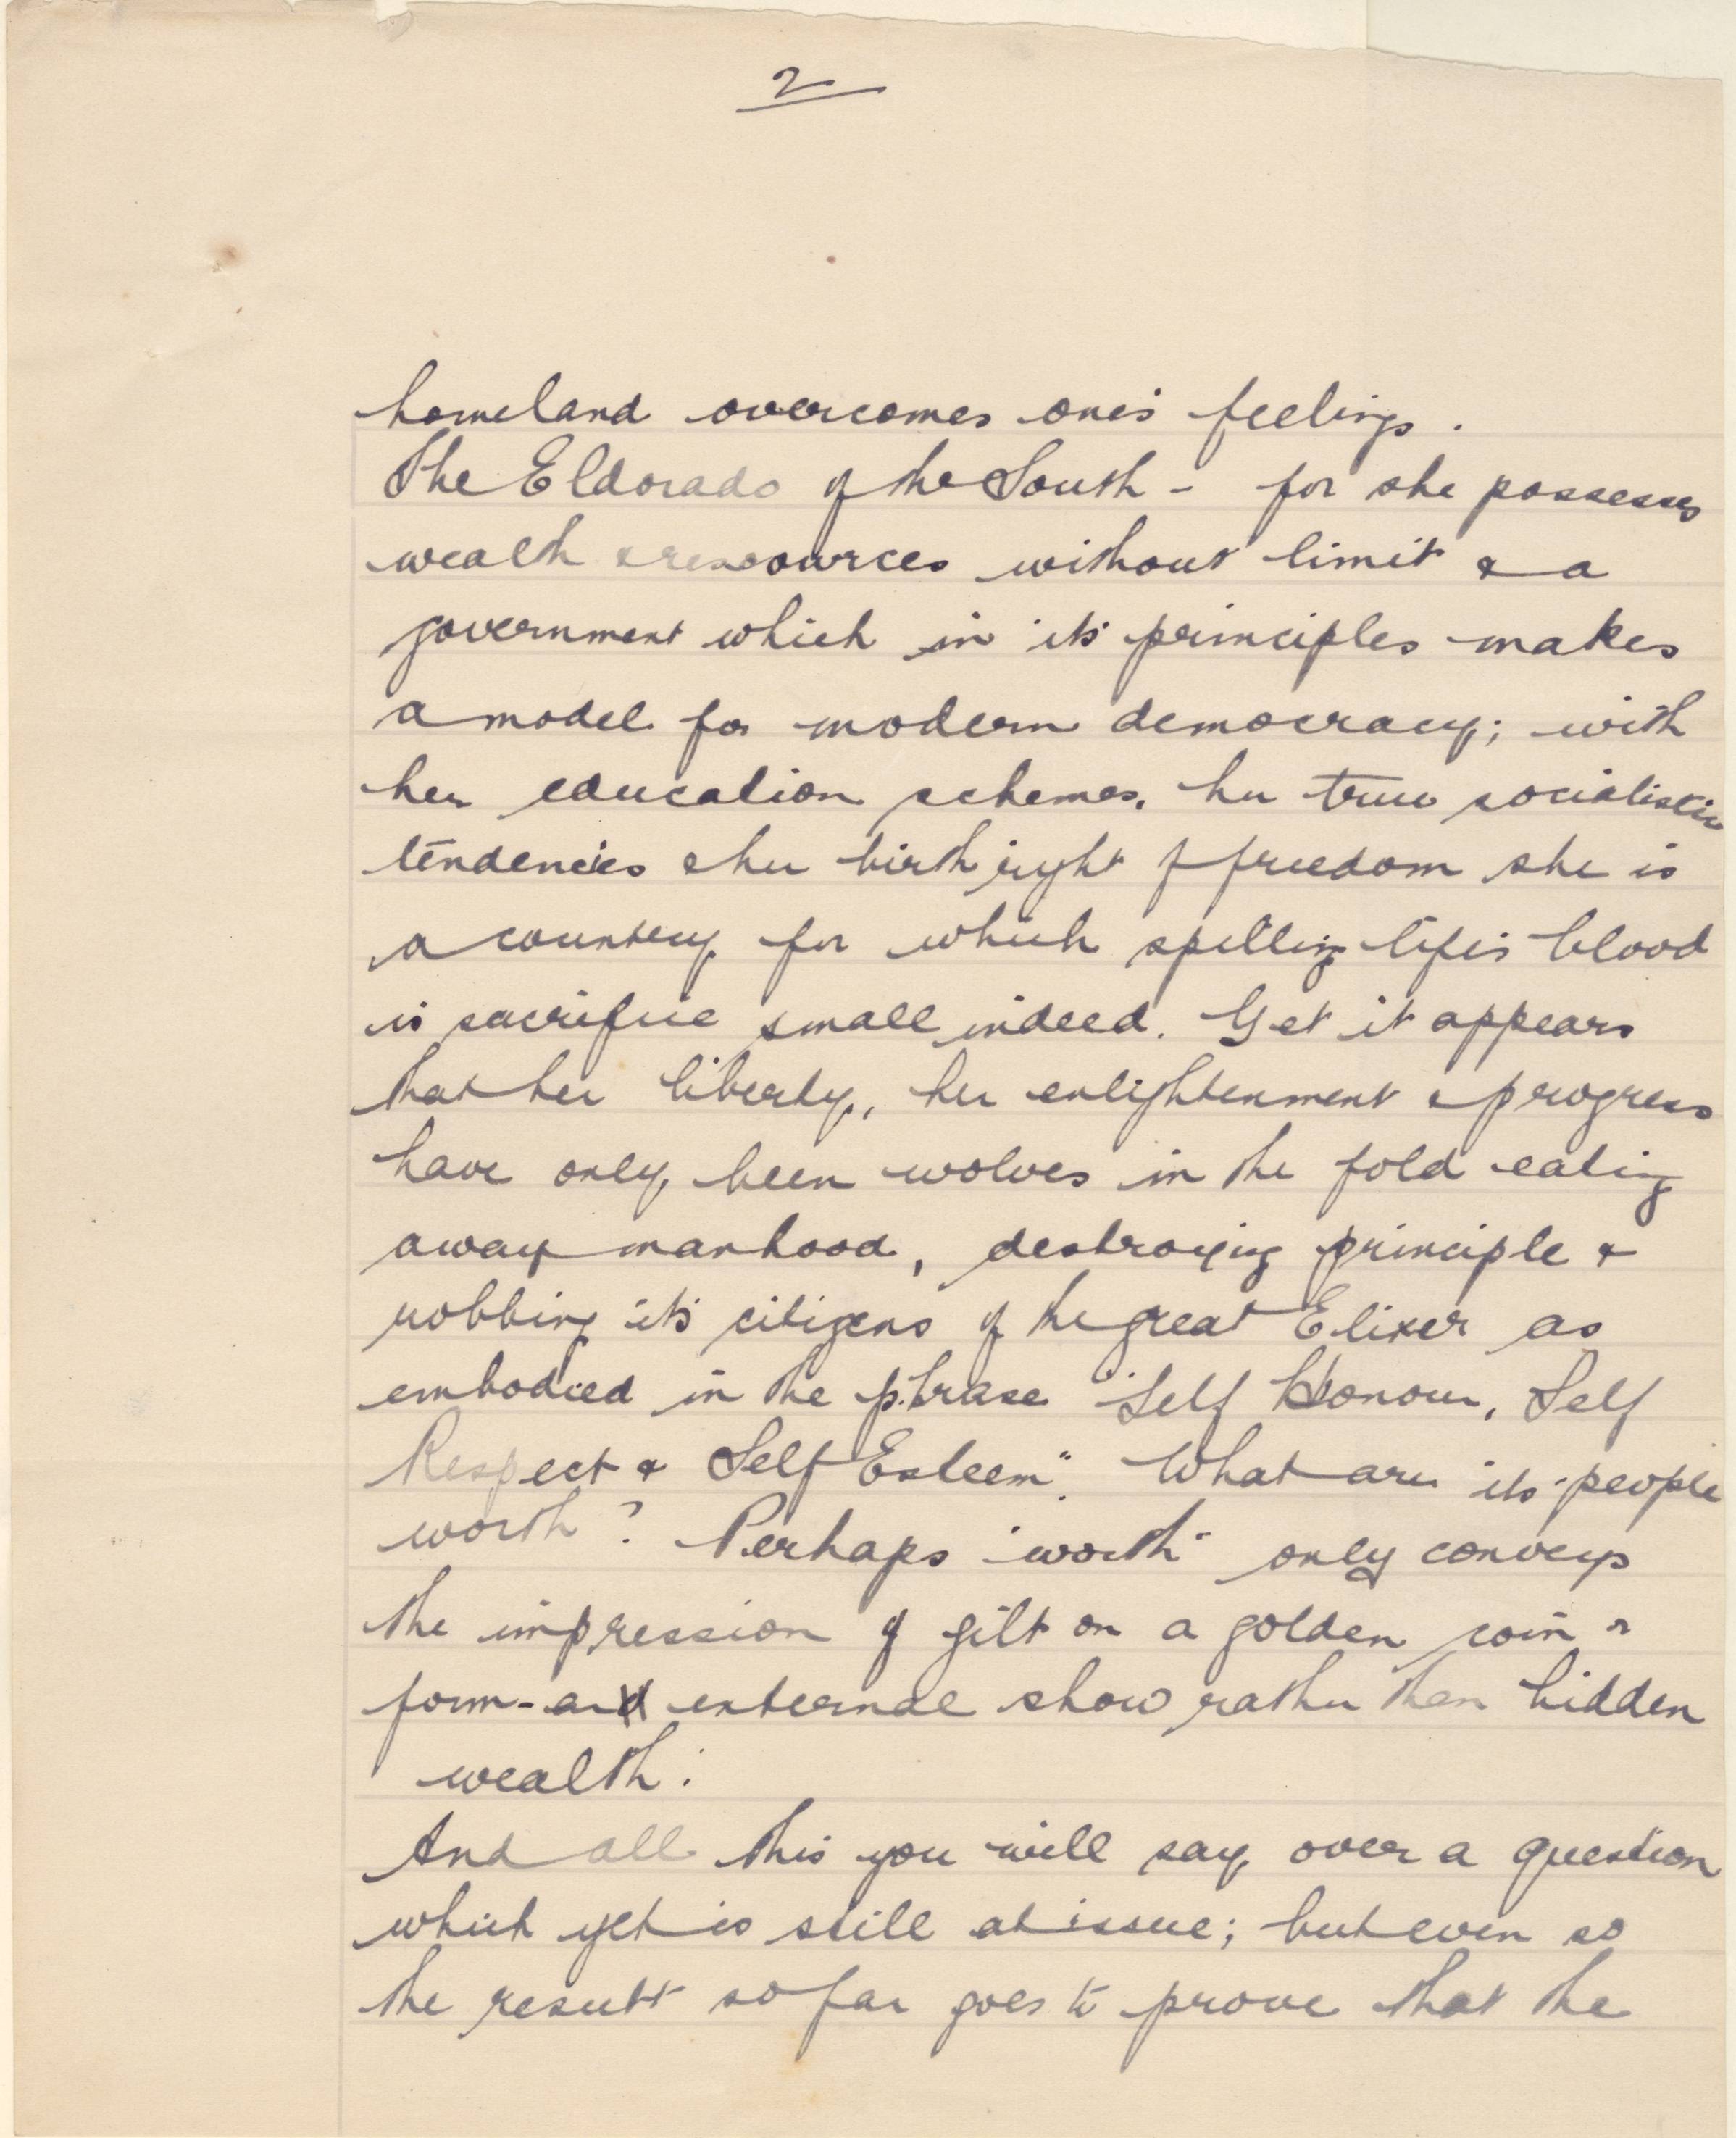 2
homeland overcomes one's feelings.
The Eldorado of the South - for she possesses
wealth & ressources without limit & a
government which in it's principles makes
a model for modern democracy; with
her education schemes, her true socialistic
tendencies & her birthright of freedom she is
a country for which spilling life's blood
is sacrifice small indeed. Yet it appears
that her liberty, her enlightenment & progress
have only been wolves in the fold eating
away manhood, destroying principle &
robbing it's citizens of the great Elixer as
embodied in the phrase "Self Honour, Self
Respect & Self Esteem". What are its people
worth? Perhaps "worth" only conveys
the impression of gilt on a golden coin -
form - and external show rather than hidden
wealth!
And all this you will say over a question
which yet is still at issue; but even so
the result so far goes to prove that the